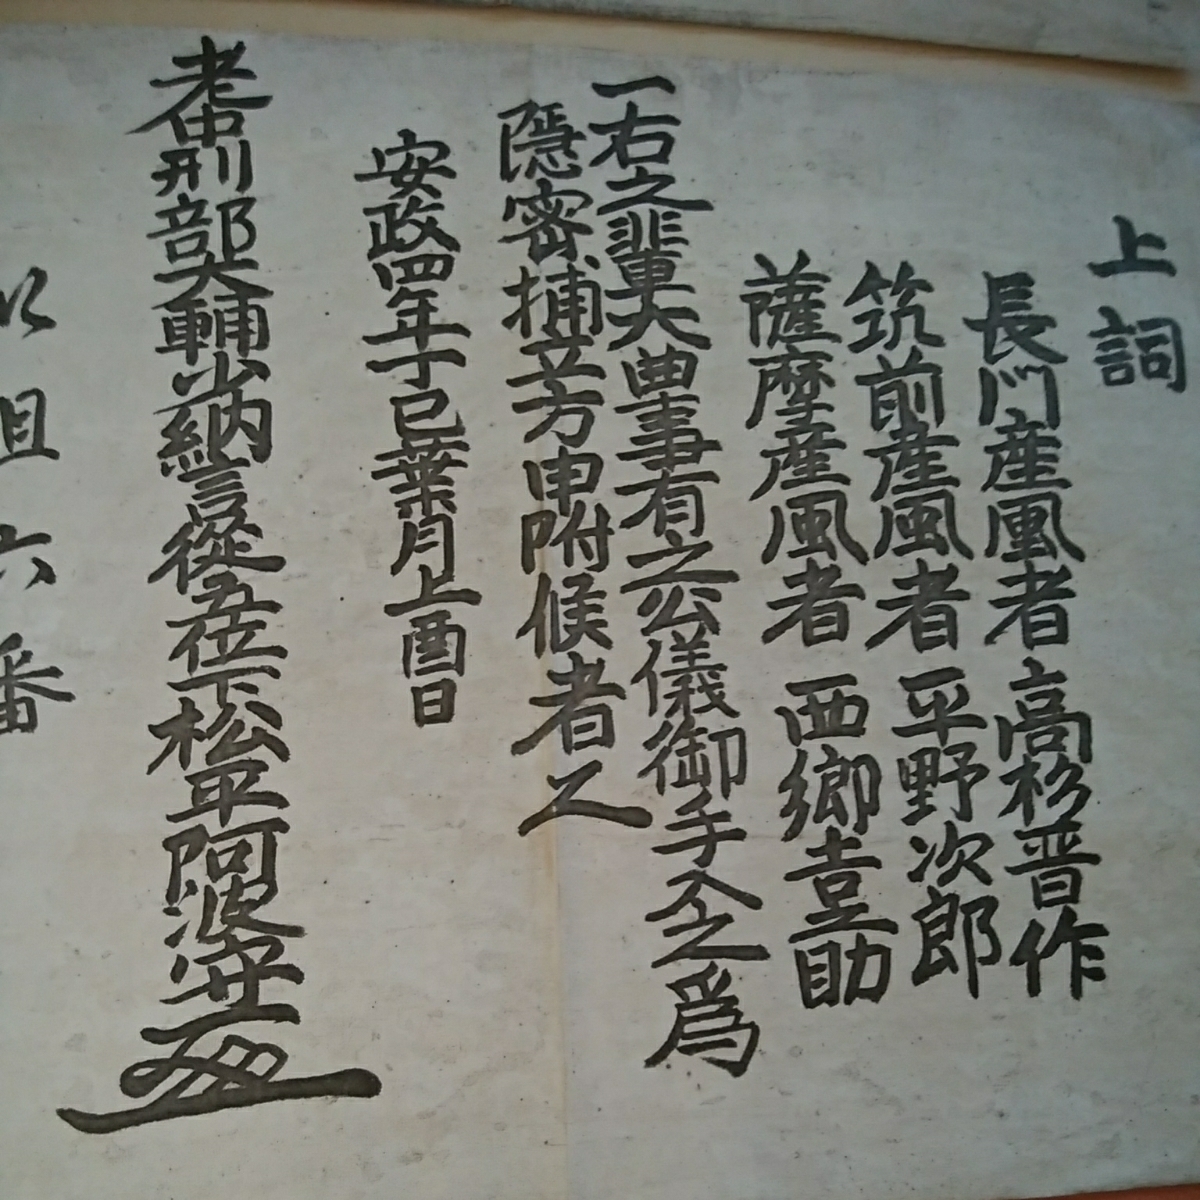 上詞
長門産風者 高杉晋作
筑前産風者 平野次郎
薩摩産風者 西郷吉助
一右之輩大典事有之公儀御手入之爲
隠密捕立方申附候者之
安政四年丁巳葉月上酉日
老中刑部大輔少納言從五位下松平阿波守
以組六番